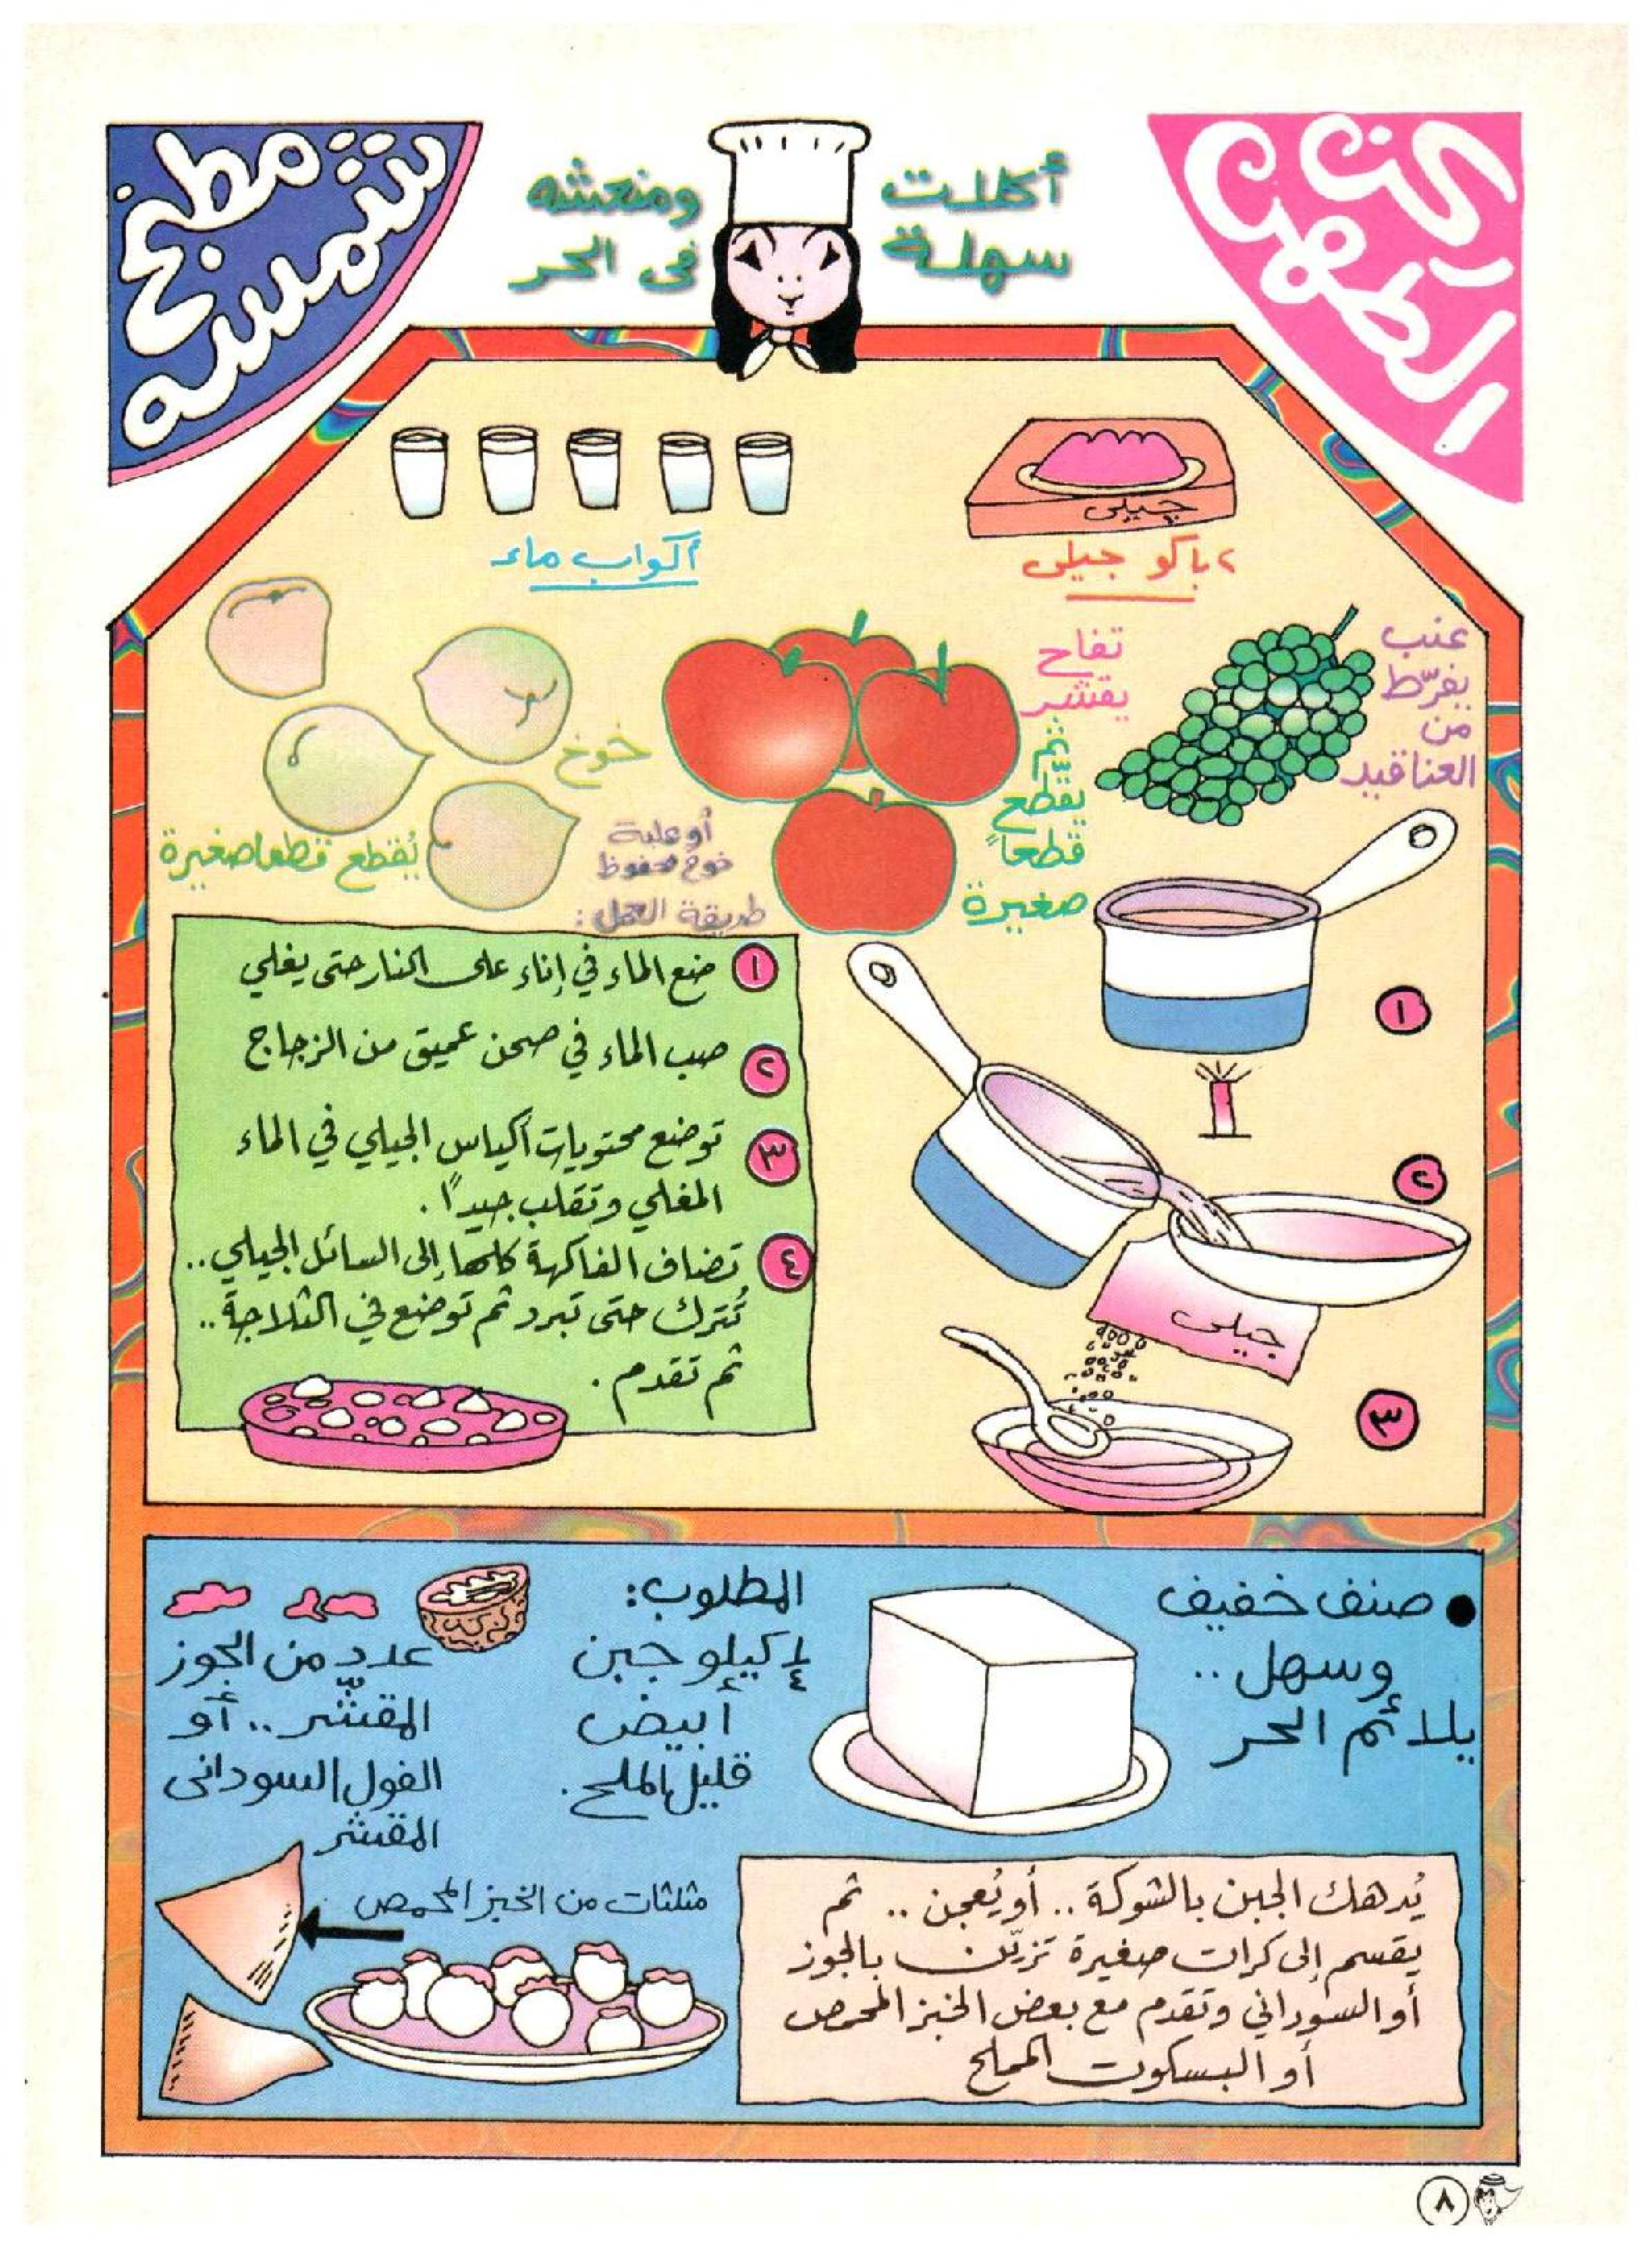 ركن
الطهى
مطبخ
شمسه
أكلات
سهلة
ومنعشه
فى الحر
جيلى
٢ باكو جيلى
أكواب ماء
عنب
يفرّط
من
العناقيد
تفاح
يقشر
ثم
يقطع
قطعاً
صغيرة
خوخ
يُقطع قطعا صغيرة
أو علبة
خوخ محفوظ
طريقة العمل :
١ ضع الماء في إناء على النار حتى يغلي
٢ صب الماء في صحن عميق من الزجاج
٣ توضع محتويات أكياس الجيلي في الماء
المغلي وتقلب جيدًا .
٤ تضاف الفاكهة كلها إلى السائل الجيلي ..
تُترك حتى تبرد ثم توضع في الثلاجة ..
ثم تقدم .
١
٢
جيلى
٣
● صنف خفيف
وسهل ..
يلائم الحر
المطلوب :
١/٤ كيلو جبن
أبيض
قليل الملح .
عدد من الجوز
المقشّر .. أو
الفول السودانى
المقشر
مثلثات من الخبز المحمص
يُدهك الجبن بالشوكة .. أو يُعجن .. ثم
يقسم إلى كرات صغيرة تزيّن بالجوز
أو السوداني وتقدم مع بعض الخبز المحمص
أو البسكوت المملح
٨